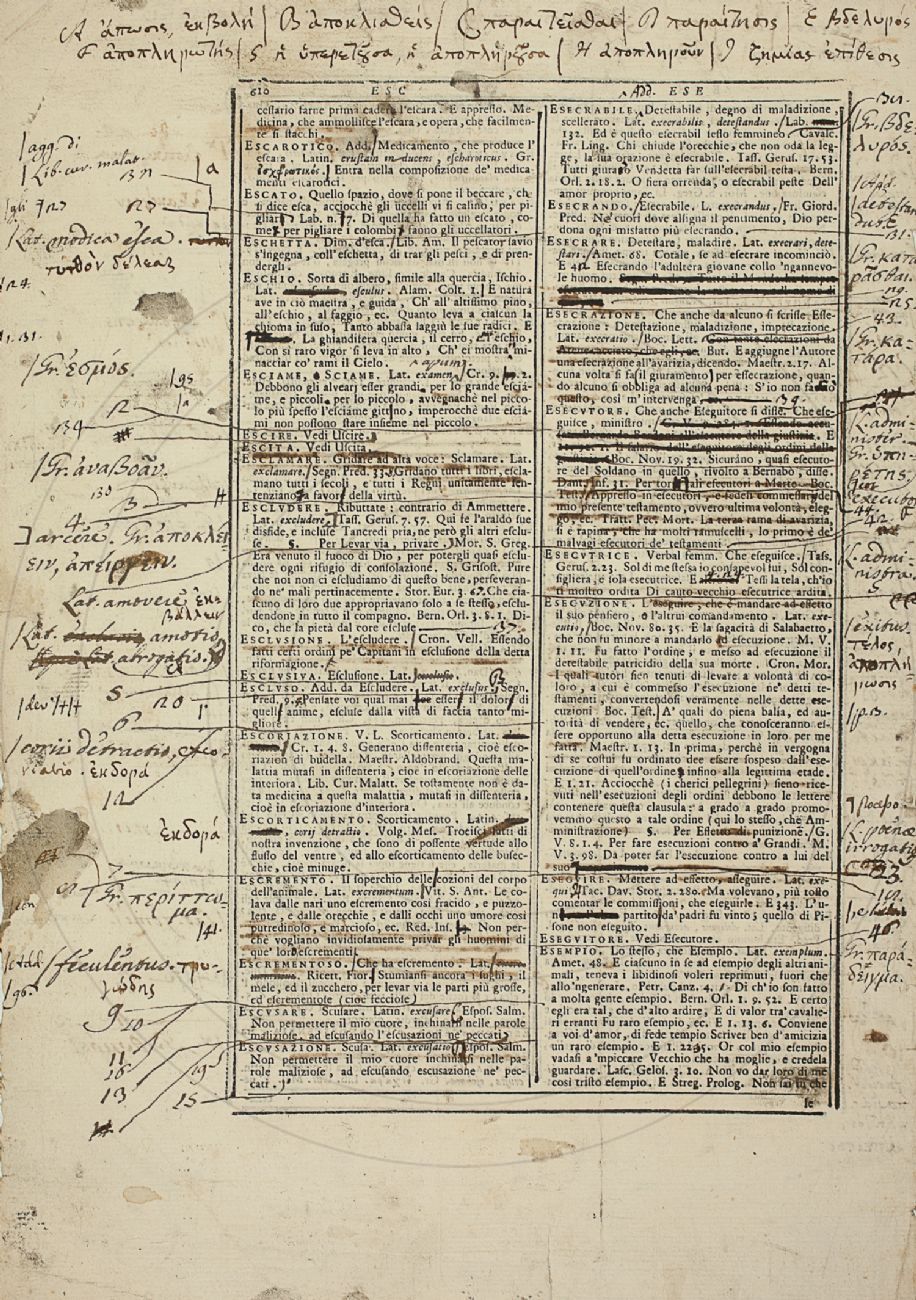 Α ἄπωσις, ἐκβολή | Β ἀποκλιαθείς | C παραιτεῖσθαι | D παραίτησις | Ε βδελυρός
ἀποπληρωτής | ἡ ὑπερετέσα, ἡ ἀποπληρέσα | Η ἀποπληροῦν | ζημίας ἐπίθεσις
610 ESC
cessario farne prima cadere l'escara. E appresso. Me-
dicina, che ammollisce l'escara, e opera, che facilmen-
te si stacchi.
ESCAROTICO. Add. Medicamento, che produce l'
escara. Latin. crustam inducens, escharoticus. Gr.
ἐσχαρωτικός. Entra nella composizione de' medica
menti escarotici.
ESCATO. Quello spazio, dove si pone il beccare, che
si dice esca, acciocchè gli uccelli vi si calino; per pi-
gliarli Lab. n. 7. Di quella ha fatto un escato, co-
me per pigliare i colombi fanno gli uccellatori.
ESCHETTA. Dim. d'esca. Lib. Am. Il pescator savio
s'ingegna, coll'eschetta, di trar gli pesci, e di pren-
dergli.
ESCHIO. Sorta di albero, simile alla quercia, Ischio.
Lat. esculus. Alam. Colt. 1. E natura
ave in ciò maestra, e guida, Ch' all'altissimo pino,
all'eschio, al faggio, ec. Quanto leva a ciascun la
chioma in suso, Tanto abbassa laggiù le sue radici. E
La ghiandifera quercia, il cerro, e l'eschio,
Con sì raro vigor si leva in alto, Ch' ei mostra mi-
nacciar co' rami il Cielo.
ESCIAME, e SCIAME. Lat. examen. Cr. 9. 2.
Debbono gli alveari esser grandi per lo grande esciá-
me, e piccoli per lo piccolo, avvegnachè nel picco-
lo più spesso l'esciáme gittino, imperocchè due esciá-
mi non possono stare insieme nel piccolo.
ESCIRE. Vedi Uscire.
ESCITA. Vedi Uscita
ESCLAMARE. Gridare ad alta voce: Sclamare. Lat.
exclamare. Segn. Pred. 33. Gridano tutti i libri, escla-
mano tutti i secoli, e tutti i Regni unitamente sen-
tenziano a favor della virtù.
ESCLUDERE. Ributtare: contrario di Ammettere.
Lat. excludere. Tass. Gerus. 7. 57. Qui fe l'araldo sue
disfide, e incluse Tancredi pria, ne però gli altri esclu-
se. §. Per Levar via, privare. Mor. S. Greg.
Era venuto il fuoco di Dio, per potergli quasi esclu-
dere ogni rifugio di consolazione. S. Grisost. Pure
che noi non ci escludiamo di questo bene, perseveran-
do ne' mali pertinacemente. Stor. Eur. 3. 67. Che cia-
scuno di loro due appropriavano solo a se stesso, esclu-
dendone in tutto il compagno. Bern. Orl. 3. 8. 1. Di-
co, che la pietà dal core escluse
ESCLUSIONE. L'escludere. Cron. Vell. Essendo
fatti certi ordini pe' Capitani in esclusione della detta
riformagione.
ESCLUSIVA. Esclusione. Lat.
ESCLUSO. Add. da Escludere. Lat. exclusus. Segn.
Pred. 9. 4. Pensate voi qual mai esser il dolor di
quell' anime, escluse dalla vista di faccia tanto mi-
gliore
ESCORIAZIONE. V. L. Scorticamento. Lat.
Cr. 1. 4. 8. Generano dissenteria, cioè esco-
riazion di budella. Maestr. Aldobrand. Questa ma-
lattia mutasi in dissenteria, cioè in escoriazione delle
interiora. Lib. Cur. Malatt. Se tostamente non è da-
ta medicina a questa malattia, mutasi in dissenteria,
cioè in escoriazione d'interiora.
ESCORTICAMENTO. Scorticamento. Latin.
corij detractio. Volg. Mes. Trocisci fatti di
nostra invenzione, che sono di possente vertude allo
flusso del ventre, ed allo escorticamento delle busec-
chie, cioè minuge.
ESCREMENTO. Il soperchio delle cozioni del corpo
dell'animale. Lat. excrementum. Vit. S. Ant. Le co-
lava dalle nari uno escremento così fracido, e puzzo-
lente, e dalle orecchie, e dalli occhi uno umore così
putredinoso, e marcioso, ec. Red. Ins. Non per-
chè vogliano invidiosamente privar gli huomini di
que' loro escrementi
ESCREMENTOSO. Che ha escremento. Lat.
Ricett. Fior. Stumiansi ancora i sughi, il
mele, ed il zucchero, per levar via le parti più grosse,
ed escrementose (cioè fecciose)
ESCUSARE. Scusare. Latin. excusare. Espos. Salm.
Non permettere il mio cuore, inchinarsi nelle parole
maliziose, ad escusando l'escusazioni ne' peccati
ESCUSAZIONE. Scusa. Lat. excusatio. Espos. Salm.
Non permettere il mio cuore inchinarsi nelle pa-
role maliziose, ad escusando escusazione ne' pec-
cati.
Add. ESE
ESECRABILE. Detestabile, degno di maladizione,
scellerato. Lat. execrabilis, detestandus. Lab.
132. Ed è questo esecrabil sesso femmineo. Cavalc.
Fr. Ling. Chi chiude l'orecchie, che non oda la leg-
ge, la sua orazione è esecrabile. Tass. Gerus. 17. 53.
Tutti giurar Vendetta far sull'esecrabil testa. Bern.
Orl. 2. 18. 2. O fiera orrenda, o esecrabil peste Dell'
amor proprio, ec.
ESECRANDO. Esecrabile. L. execrandus. Fr. Giord.
Pred. Ne' cuori dove alligna il pentimento, Dio per-
dona ogni misfatto più esecrando.
ESECRARE. Detestare, maladire. Lat. execrari, dete-
stari. Amet. 68. Cotale, se ad esecrare incominciò.
E 42. Esecrando l'adultera giovane collo 'ngannevo-
le huomo.
ESECRAZIONE. Che anche da alcuno si scrisse Esse-
crazione: Detestazione, maladizione, imprecazione.
Lat. execratio. Boc. Lett. Con tante esecrazioni da
But. E aggiugne l'Autore
una esecrazione all'avarizia, dicendo. Maestr. 2. 17. Al-
cuna volta si fa il giuramento per essecrazione, quan-
do alcuno si obbliga ad alcuna pena: S'io non fa
questo, così m'intervenga
ESECUTORE. Che anche Eseguitore si disse. Che ese-
guisce, ministro.
Boc. Nov. 19. 32. Sicuráno, quasi esecuto-
re del Soldano in quello, rivolto a Bernabò, disse.
Dant. Inf. 31. Per tor tali esecutori a Marte. Boc.
Test. Appresso in esecutori, e fedeli commessarj del
mio presente testamento, ovvero ultima volontà, eleg-
go, ec. Tratt. Pec. Mort. La terza rama di avarizia,
si è rapina, che ha molti ramuscelli, lo primo è de'
malvagi esecutori de' testamenti.
ESECUTRICE. Verbal femm. Che eseguisce. Tass.
Gerus. 2. 23. Sol di me stessa io consapevol fui, Sol con-
sigliera, e sola esecutrice. E Tessi la tela, ch'io
ti mostro ordita Di cauto vecchio esecutrice ardita.
ESECUZIONE. L'eseguire, che è mandare ad effetto
il suo pensiero, o l'altrui comandamento. Lat. exe-
cutio. Boc. Nov. 80. 35. E la sagacità di Salabaetto,
che non fu minore a mandarlo ad esecuzione. M. V.
1. 11. Fu fatto l'ordine, e messo ad esecuzione il
detestabile patricidio della sua morte. Cron. Mor.
I quali autori sien tenuti di levare a volontà di co-
loro, a cui è commesso l'esecuzione ne' detti te-
stamenti, convertendosi veramente nelle dette ese-
cuzioni. Boc. Test. A' quali do piena balia, ed au-
torità di vendere, ec. quello, che conosceranno es-
sere opportuno alla detta esecuzione in loro per me
fatta. Maestr. 1. 13. In prima, perchè in vergogna
di se costui fu ordinato dee essere sospeso dall'ese-
cuzione di quell'ordine infino alla legittima etade.
E 1. 21. Acciocchè (i cherici pellegrini) sieno rice-
vuti nell'esecuzione degli ordini debbono le lettere
contenere questa clausula: a grado a grado promo-
vemmo questo a tale ordine (qui lo stesso, che Am-
ministrazione) §. Per Effetto di punizione. G.
V. 8. 1. 4. Per fare esecuzioni contro a' Grandi. M.
V. 3. 98. Da poter far l'esecuzione contro a lui del
suo
ESEGUIRE. Mettere ad effetto, asseguire. Lat. exe-
qui. Tac. Dav. Stor. 2. 280. Ma volevano, più tosto
comentar le commissioni, che eseguirle. E 343. L'u-
n partito da' padri fu vinto; quello di Pi-
sone non eseguito.
ESEGUITORE. Vedi Esecutore.
ESEMPIO. Lo stesso, che Esemplo. Lat. exemplum.
Amet. 48. E ciascuno in se ad esempio degli altri ani-
mali, teneva i libidinosi voleri reprimuti, fuori che
allo 'ngenerare. Petr. Canz. 4. 1. Di ch'io son fatto
a molta gente esempio. Bern. Orl. 1. 9. 52. E certo
egli era tal, che d'alto ardire, E di valor tra' cavalie-
ri erranti Fu raro esempio, ec. E 1. 13. 6. Conviene
a voi d'amor, di fede tempio Scriver ben d'amicizia
un raro esempio. E 1. 22. 5. Or col mio esempio
vadasi a'mpiccare Vecchio che ha moglie, e credela
guardare. Lasc. Gelos. 3. 10. Non vo dar loro di me
così tristo esempio. E Streg. Prolog. Non sai tu, che
se
agg. di
Lib. cur. malat.
Lat. modica esca.
τυτθὸν δέλεαρ
Gr. ἑσμός.
12
139
Gr. ἀναβοᾶν.
130
3
4
arcere. Gr. ἀποκλεί-
ειν, ἀπείργειν.
Lat. amovere, ἐκ-
βάλλειν
Lat. amotio
abrogatio.
5
20
6
corii detractio, exco-
riatio. ἐκδορά
12
ἐκδορά
7
Gr. περίττω-
μα.
141.
feculentus. τρυ-
γώδης
96.
9
10
11
16
13
19
15
Gr. βδε-
λυρός.
Add.
131.
Gr. κατα-
ρᾶσθαι.
43.
Gr. κα-
τάρα.
L. admi-
nister.
Gr. ὑπη-
ρέτης,
executor
44.
42
L. admi-
nistra.
5
exitus.
τέλος,
ἀποπλή-
ρωσις
L. poenae
irrogatio
23.
46.
Gr. παρά-
δειγμα.